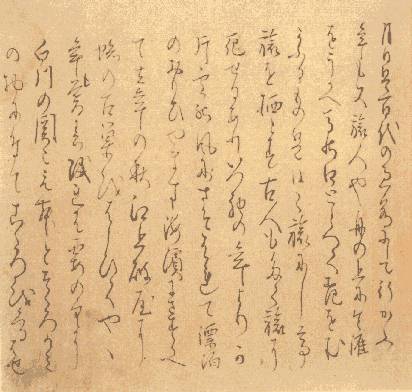 月日は百代の過客にして行かふ
年も又旅人也舟の上に生涯
をうかへ馬の口とらへて老をむ
かふるものは日々旅にして
旅を栖とす古人も多く旅に
死せるあり予もいつれの年よりか
片雲の風にさそはれて漂泊
のおもひやます海濱にさすらへ
て去年の秋江上破屋に
蜘の古巣をはらひてやゝ
年も暮春立る霞の空に
白川の関こえむとそゝろかみ
の物に付てこゝろをくるはせ